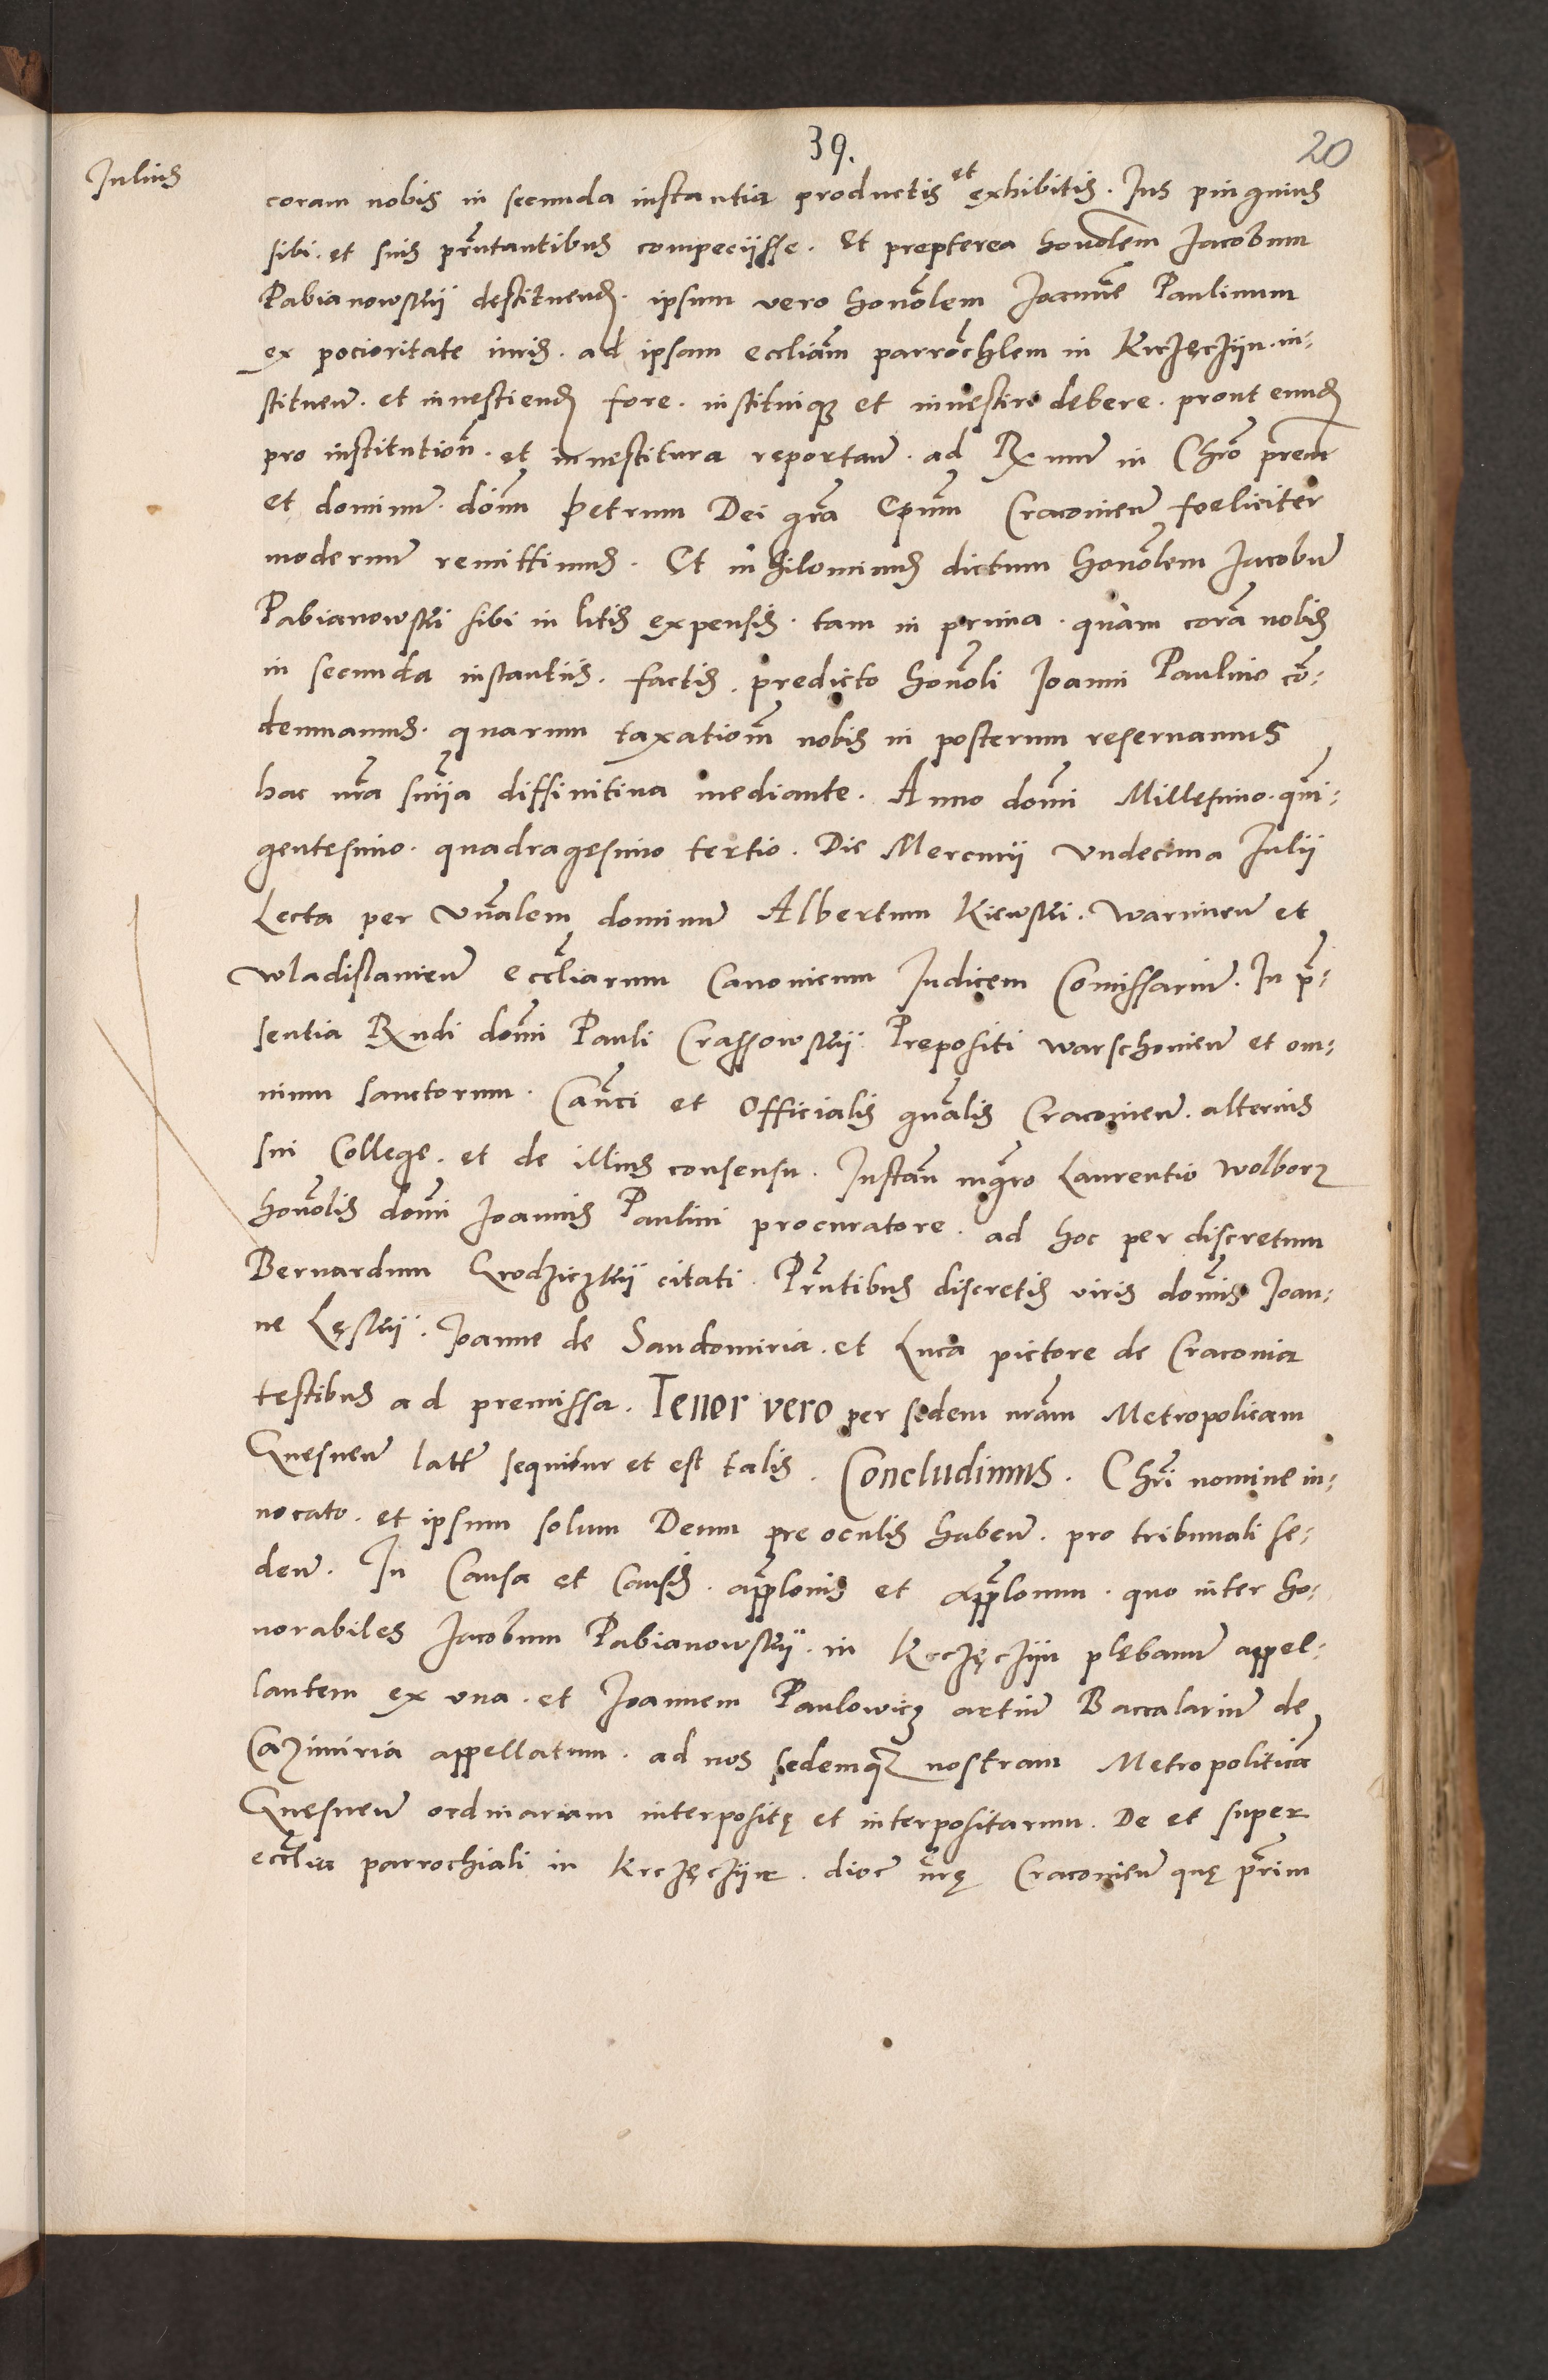 39.
20
Iulius
coram nobis in secunda instantia productis et exhibitis. Ius pinguius
sibi. et suis prñtantibus compeciisse. Et prepterea honolem Iacobum
Pabianowskij destituend. ipsum vero honolem Ioannē Paulinum
ex pocioritate iuris. ad ipsam eccliam parrochlem in Krczęcijn. in-
stituen. et inuestiend fore. instituique et inuestiri debere. prout eund
pro institution. et inuestitura reportan. ad Rx mum in Chro prem
et dominum. dom̄ Petrum Dei gra Epum Cracouien foeliciter
modernum remittimus. Et nihilominus dictum honolem Iacobum
Pabianowski sibi in litis expensis. tam in prima. quam corā nobis
in secunda instantiis. factis. predicto honoli Ioanni Paulino cō-
demnamus. quarum taxationem nobis in posterum reseruamus
hac nrā sniia diffinitiua mediante. Anno domi Millesimo. qui-
gentesimo. quadragesimo tertio. Die Mercurii Vndecima Iulii
Lecta per vnalem dominum Albertum Kiewski. Warmien et
Wladislauien eccliarum Canonicum Iudicem Comissarium. In prę-
sentia Rxndi domi Pauli Crassowskij Prepositi warschouien et om-
nium sanctorum. Canci et Officialis gnalis Cracouien. alterius
sui College. et de illius consensu. Instan mgro Laurentio Wolborz
honolis domi Ioannis Paulini procuratore. ad hoc per discretum
Bernardum Grodziczkij citati. Prntibus discretis viris domis Ioan-
ne Lęskij. Ioanne de Sandomiria. et Luca pictore de Craconia
testibus ad premissa. Tenor vero per sedem nram Metropolicam
Gnesnen latę sequitur et est talis. Concludimus. Chri nomine in-
uocato. et ipsum solum Deum pre oculis haben. pro tribunali se-
den. In Causa et Causis. applonis et applonum. quo inter ho-
norabiles Iacobum Pabianowskij. in Krczęcijn plebanum appel-
lantem ex vna. et Ioannem Paulowicz artium Baccalarium de
Cazimiria appellatum. ad nos sedemque nostram Metropoliticā
Gnesnen ordinariam interpositę et interpositarum. De et super
ecclia parrochiali in Krczęcijn. dioc nrę Cracouien quę prim